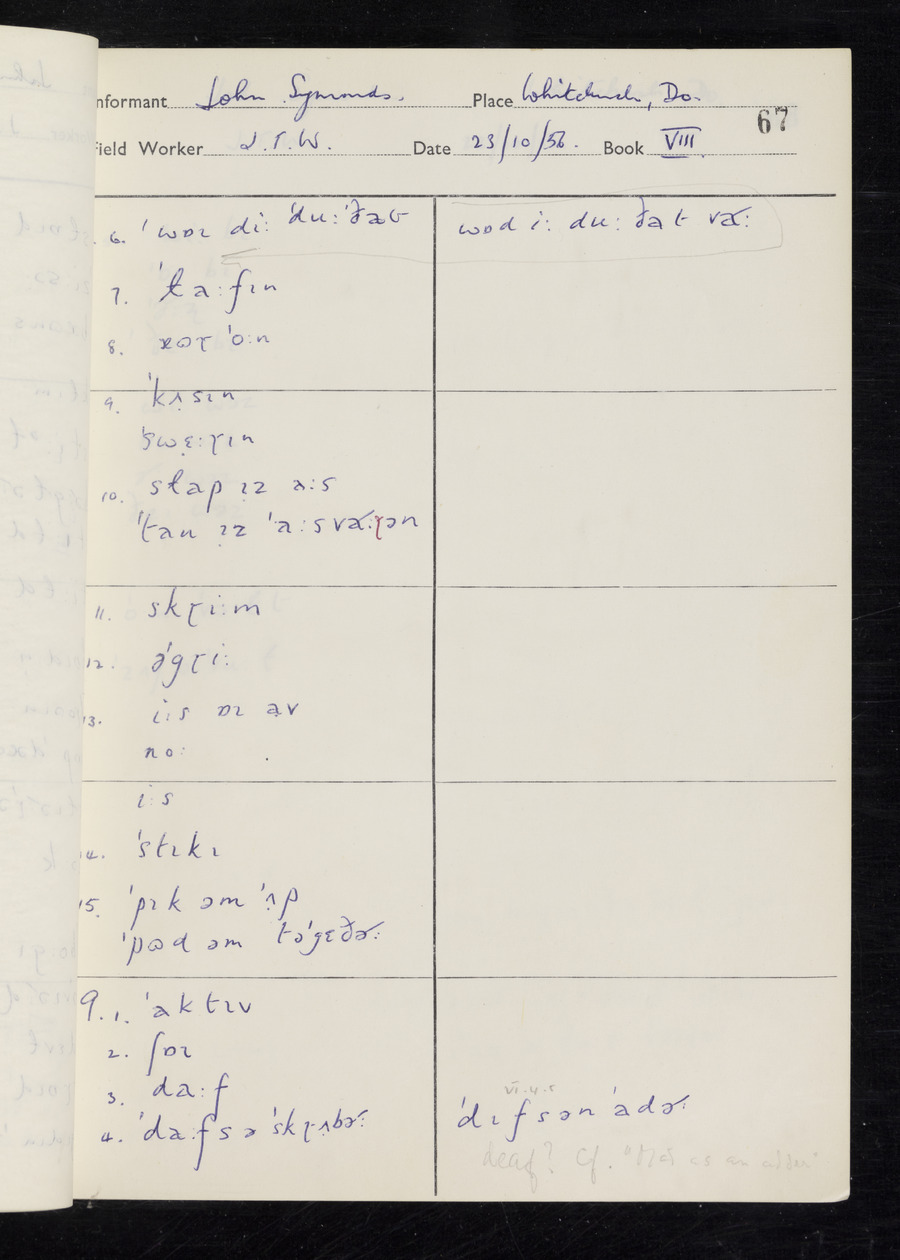 Informant John Symonds. Place Whitchurch, Do.
67
Field Worker J.T.W. Date 23/10/56. Book VIII
6. ˈwɒɪ diː ˈduː ˈðat wɒd iː duː ðat vɚː
7. ˈtaːfɪn
8. ˈoːn
9. ˈkʌ̣sɪn
ˈswɛ̣ːɽɪn
10. stap ɪ̣z aːs
ˈtan ɪ̣z ˈaːs vɚːɽən
11. skɽiːm
12. əˈgɽiː
13. iːs ɒɪ av
noː
iːs
14. ˈstɪkɪ
15. ˈpɪk əm ˈʌ̣p
ˈpɷd əm təˈgɛðɚː
9.1. ˈaktɪv
2. ʃɒɪ
3. daːf
VI.4.5
4. ˈdaːf s ə ˈskɽʌ̣bɚː ˈdɪf s ən ˈadɚː
deaf? Cf. "as an adder"